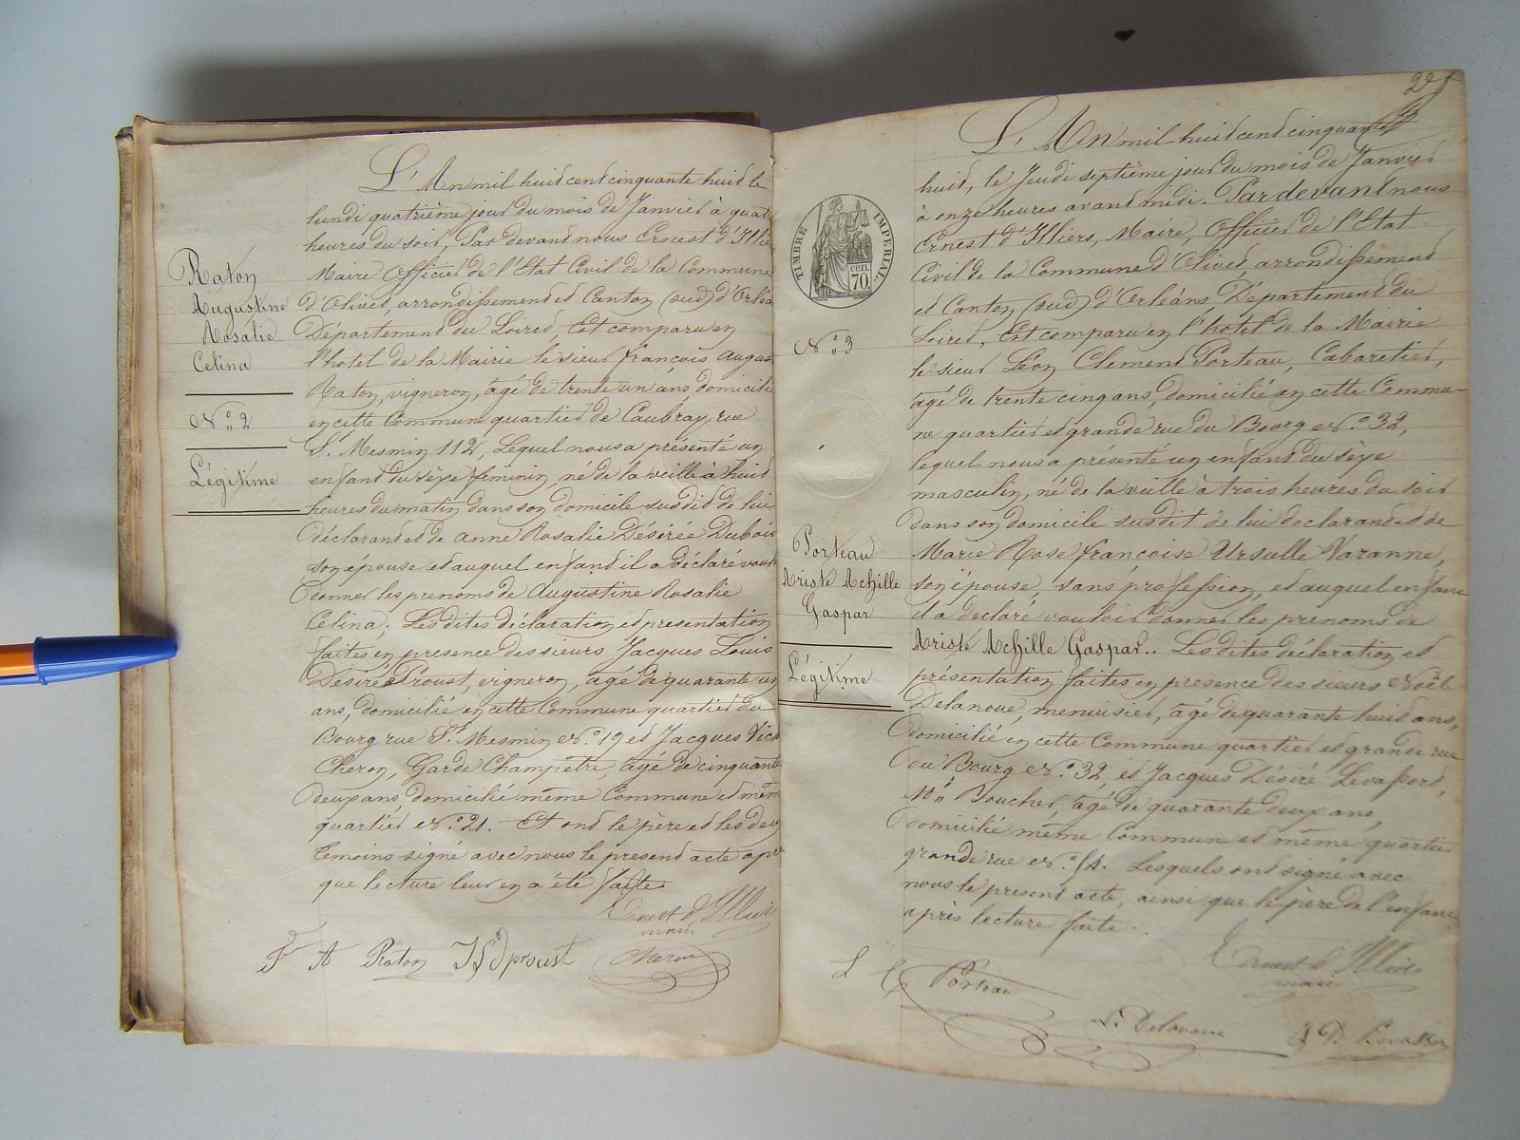 Raton
Augustine
Rosalie
Celina
N.° 2
Légitime
L'An mil huit cent cinquante huit le
lundi quatrième jour du mois de Janvier à quat
heures du soir, Par devant nous Ernest d'Illie
Maire Officier de l'Etat Civil de la Commune
d'Olivet, arrondissement et Canton (sud) d'Orléa
Département du Loiret, Est comparu en
l'hotel de la Mairie le sieur françois Augus
Raton, vigneron, agé de trente un ans, domicilié
en cette Commune quartier de Caubray, rue
S. Mesmin 112, Lequel nous a présenté un
enfant du sèxe feminin, né de la veille à huit
heures du matin dans son domicile susdit de lui
déclarant et de Anne Rosalie Désirée Dubois
son épouse et auquel enfant il a déclaré vouloi
donner les prenoms de Augustine Rosalie
Célina; Les dites déclaration et presentation
faites en presence des sieurs Jacques Louis
Désiré Proust, vigneron, agé de quarante un
ans, domicilié en cette Commune quartier du
Bourg rue St. Mesmin N.° 19 et Jacques Vict
Cheron, Garde Champêtre, agé de cinquante
deux ans, domicilié même Commune et mêm
quartier N.° 21. Et ont le père et les deux
témoins signé avec nous le present acte apr
que lecture leur en a été faite
Ernest d'Illiers
maire
F A Raton J L D proust Cheron
22
L'An mil huit cent cinquante
huit, le Jeudi septième jour du mois de Janvier
à onze heures avant midi. Par devant nous
Ernest d'Illiers, Maire, Officier de l'Etat
Civil de la Commune d'Olivet, arrondissement
et Canton (sud) d'Orléans Département du
Loiret, Est comparu en l'hotel de la Mairie
le sieur Léon Clement Porteau, Cabaretier,
agé de trente cinq ans, domicilié en cette Commu-
ne quartier et grande rue du Bourg N.° 32,
lequel nous a présenté un enfant du sèxe
masculin, né de la veille à trois heures du soir
dans son domicile susdit de lui declarant et de
Marie Rose françoise Ursulle Varanne,
son épouse, sans profession, et auquel enfant
il a declaré vouloir donner les prenoms de
Ariste Achille Gaspar. Les dites déclaration et
présentation faites en presence des sieurs Noël
Delanoue, menuisier, agé de quarante huit ans,
domicilié en cette Commune quartier et grande rue
du Bourg N.° 32, et Jacques Désiré Levassort,
Md. Boucher, agé de quarante deux ans,
domicilié même Commune et même quartier
grande rue N.° 54. Lesquels ont signé avec
nous le present acte, ainsi que le père de l'enfant
après lecture faite.
TIMBRE IMPERIAL
70 CEN.
N.° 3
Porteau
Ariste Achille
Gaspar
Légitime
Ernest d'Illiers
maire
L C Porteau
N. Delanoue J D Levassor